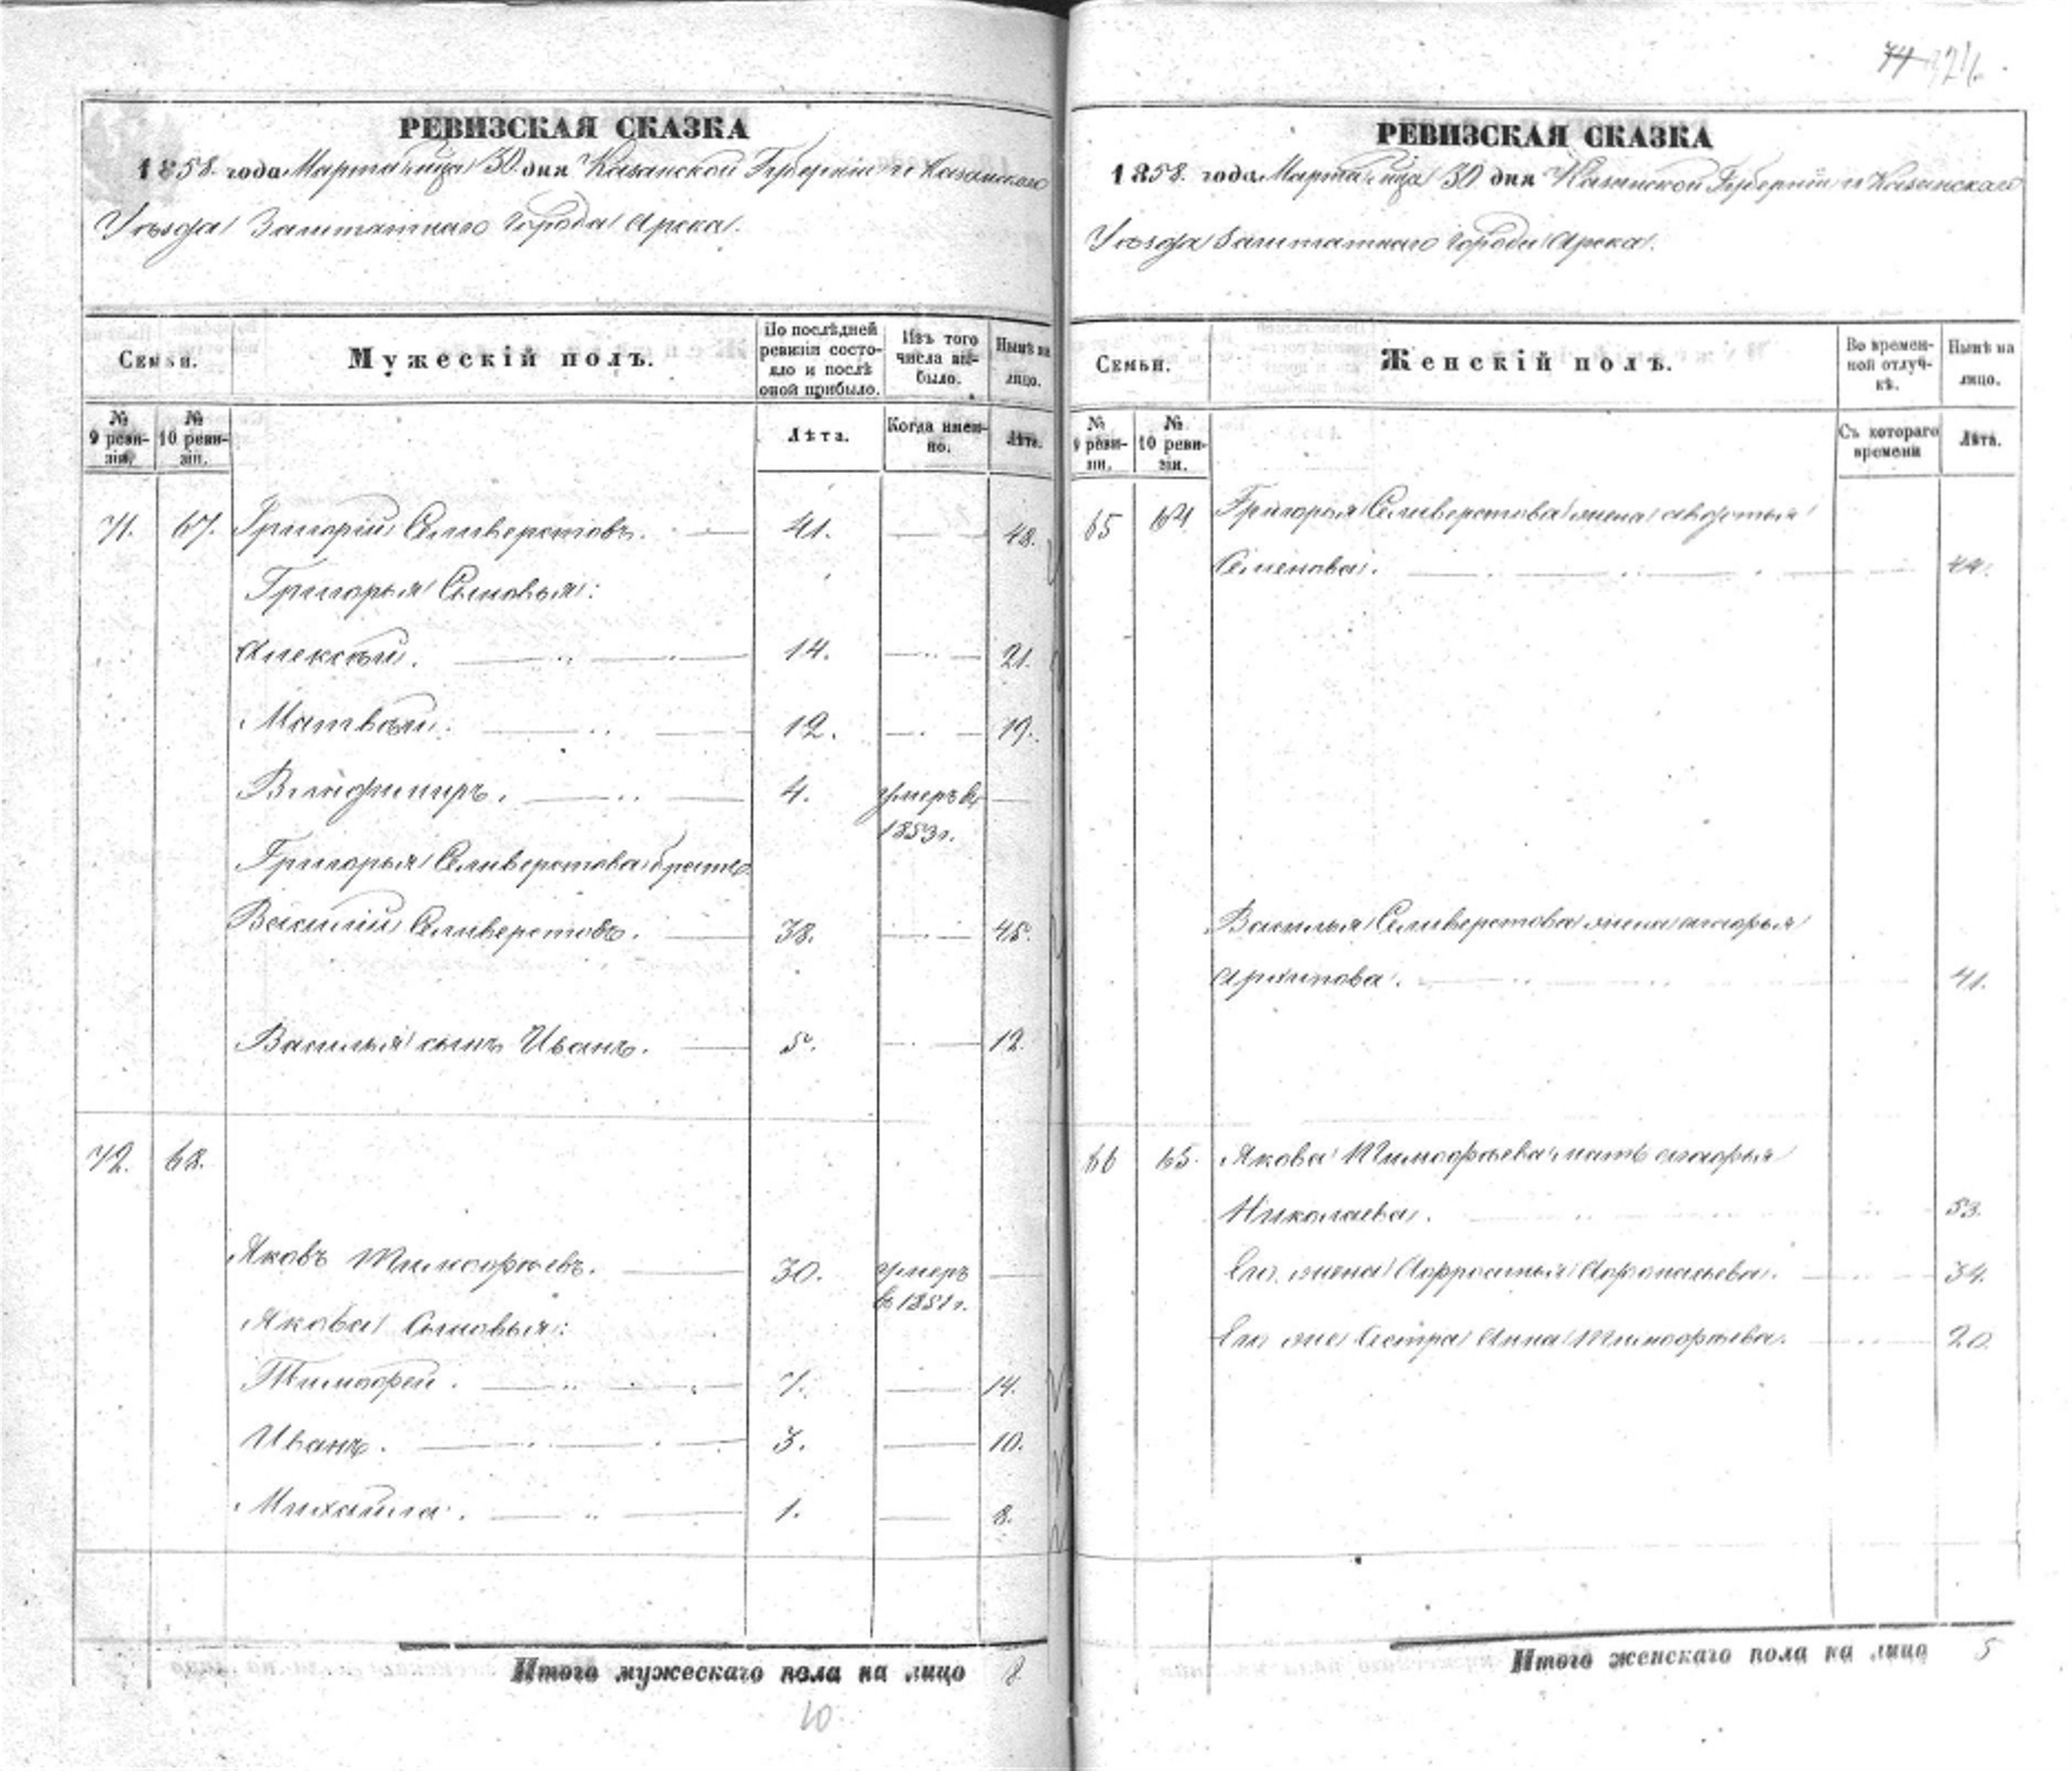 РЕВИЗСКАЯ СКАЗКА
1858. года Марта м-ца 30. дня Казанской Губерніи и Казанскаго
Уѣзда Заштатнаго Города Арска.
Семьи.
Мужескій полъ.
По послѣдней ревизіи состояло и послѣ оной прибыло.
Изъ того числа выбыло.
Нынѣ на лицо.
№ 9 ревизіи.
№ 10 ревизіи.
Лѣта.
Когда именно.
Лѣта.
71. 67. Григорій Селиверстовъ. 41. 48.
Григорья Сыновья:
Алексѣй. 14. 21.
Матвѣй. 12. 19.
Владимиръ. 4. умеръ въ
1853 г.
Григорья Селиверстова братъ
Василій Селиверстовъ. 38. 45.
Василья сынъ Иванъ. 5. 12.
72. 68.
Яковъ Тимофѣевъ. 30. умеръ
въ 1851 г.
Якова Сыновья:
Тимофей. 7. 14.
Иванъ. 3. 10.
Михайла. 1. 8.
Итого мужескаго пола на лицо 8
10
74
РЕВИЗСКАЯ СКАЗКА
1858. года Марта м-ца 30 дня Казанской Губерніи и Казанскаго
Уѣзда Заштатнаго Города Арска.
Семьи.
Женскій полъ.
Во временной отлучкѣ.
Нынѣ на лицо.
№ 9 ревизіи.
№ 10 ревизіи.
Съ котораго времени
Лѣта.
65 64 Григорья Селиверстова жена Авдотья
Семенова. 44.
Василья Селиверстова жена
Архипова. 41.
66 65. Якова Тимофѣева мать
Николаева. 53.
Его жена Афросинья 34.
Его же Сестра Анна Тимофѣева. 20.
Итого женскаго пола на лицо 5